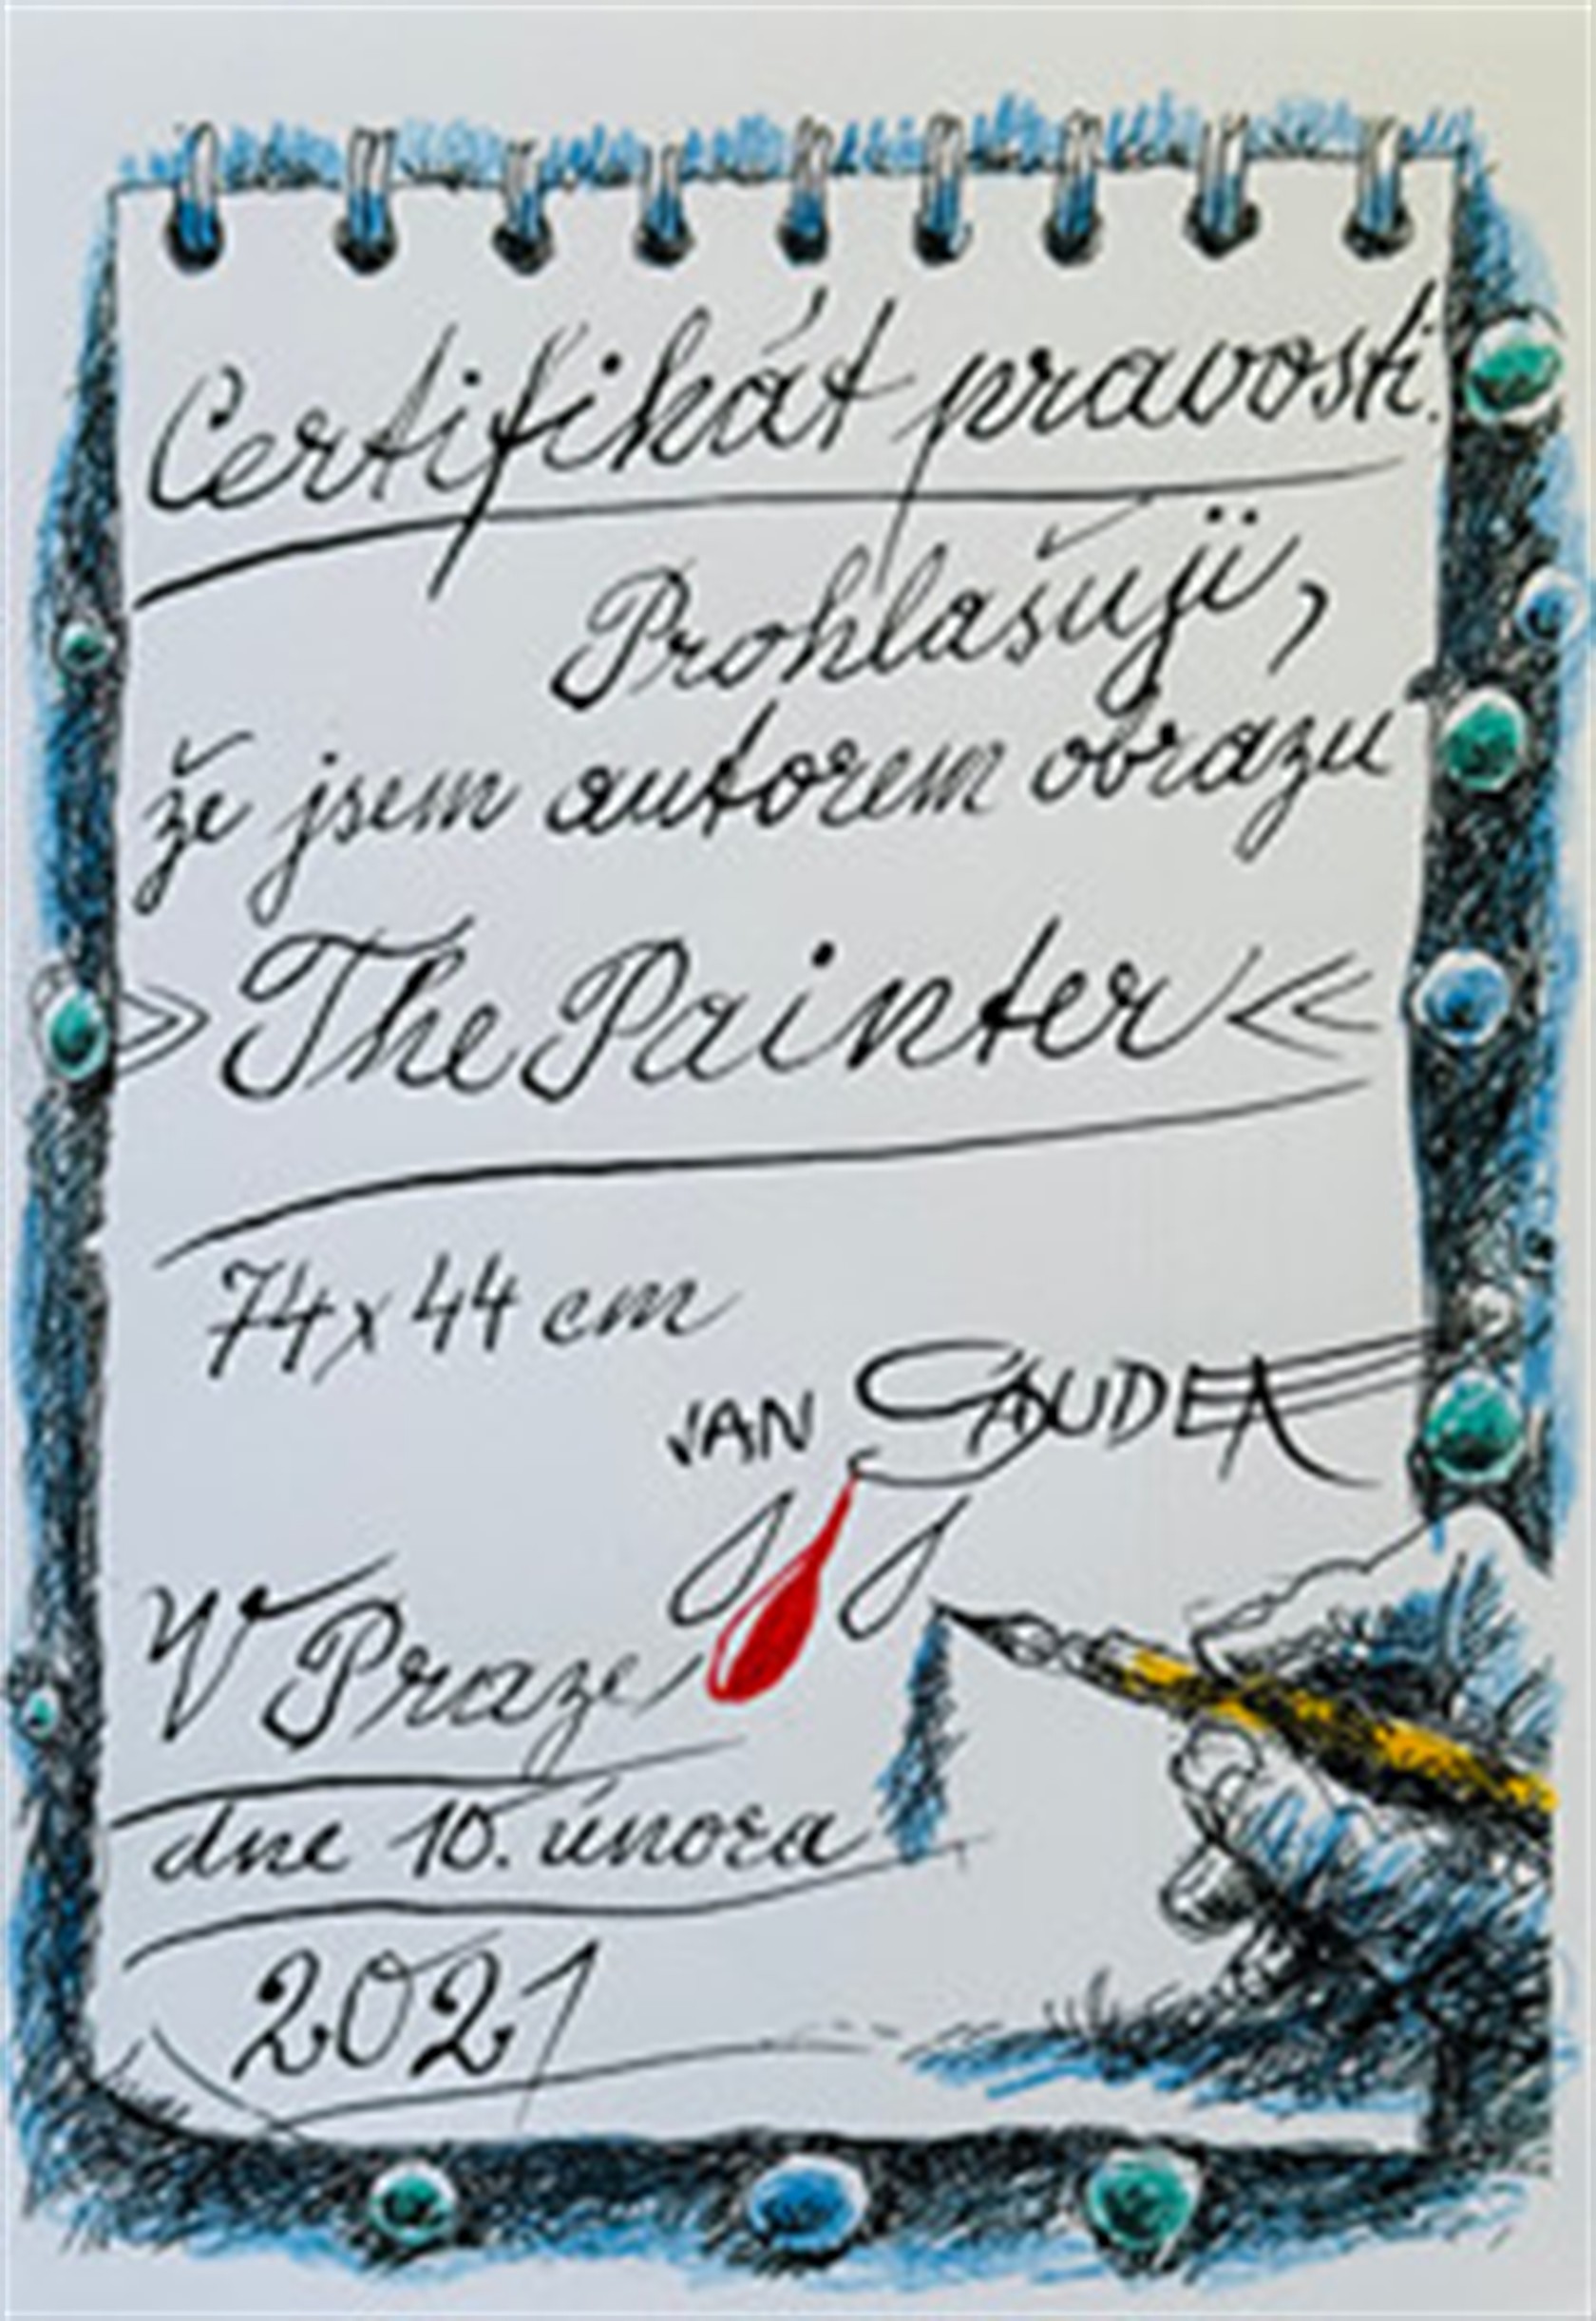 Certifikát pravosti.
Prohlašuji,
že jsem autorem obrazu
»The Painter«
74x44 cm
JAN SAUDEK
V Praze
dne 10. února
2021